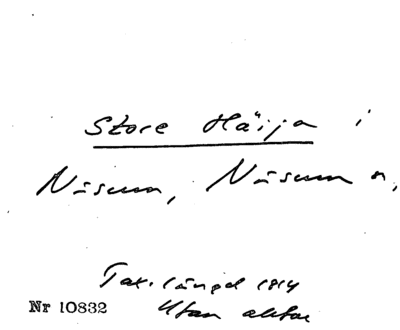 Store Häija i
Näsum, Näsum n,
Tax. längd 1814
Nr 10832 Utan aktar